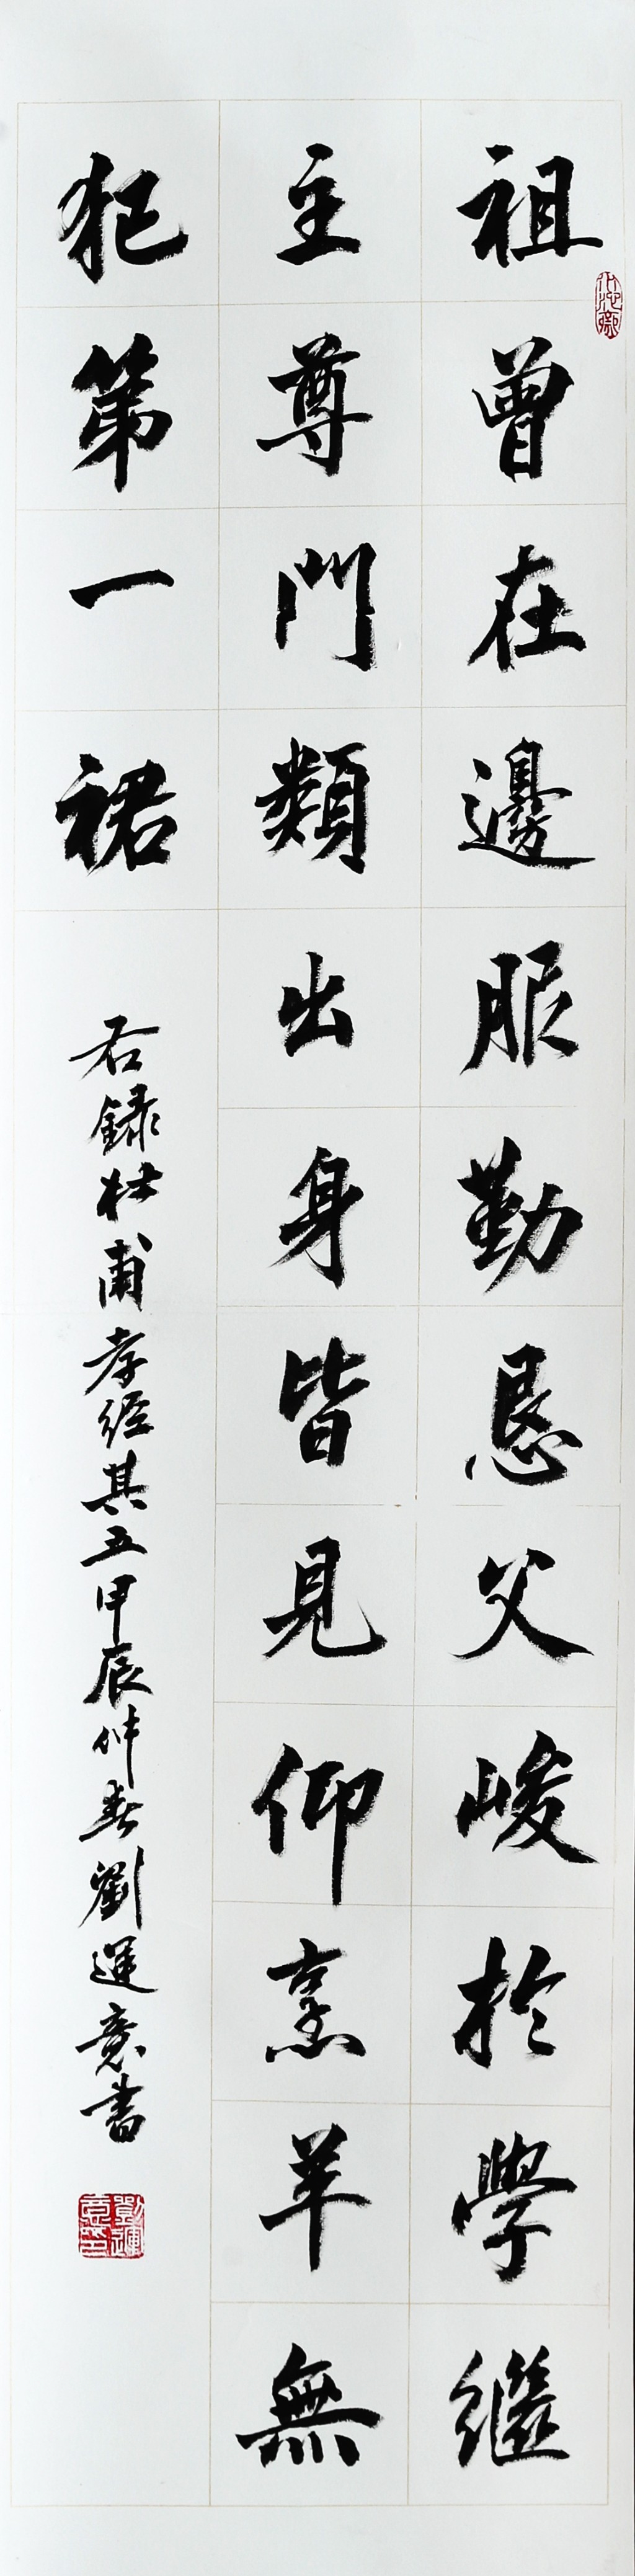 祖曾在邊服勤恳父峻於學繼
主尊門類出身皆見仰烹羊無
犯第一裙
右録杜甫孝經其五甲辰仲春劉運意書